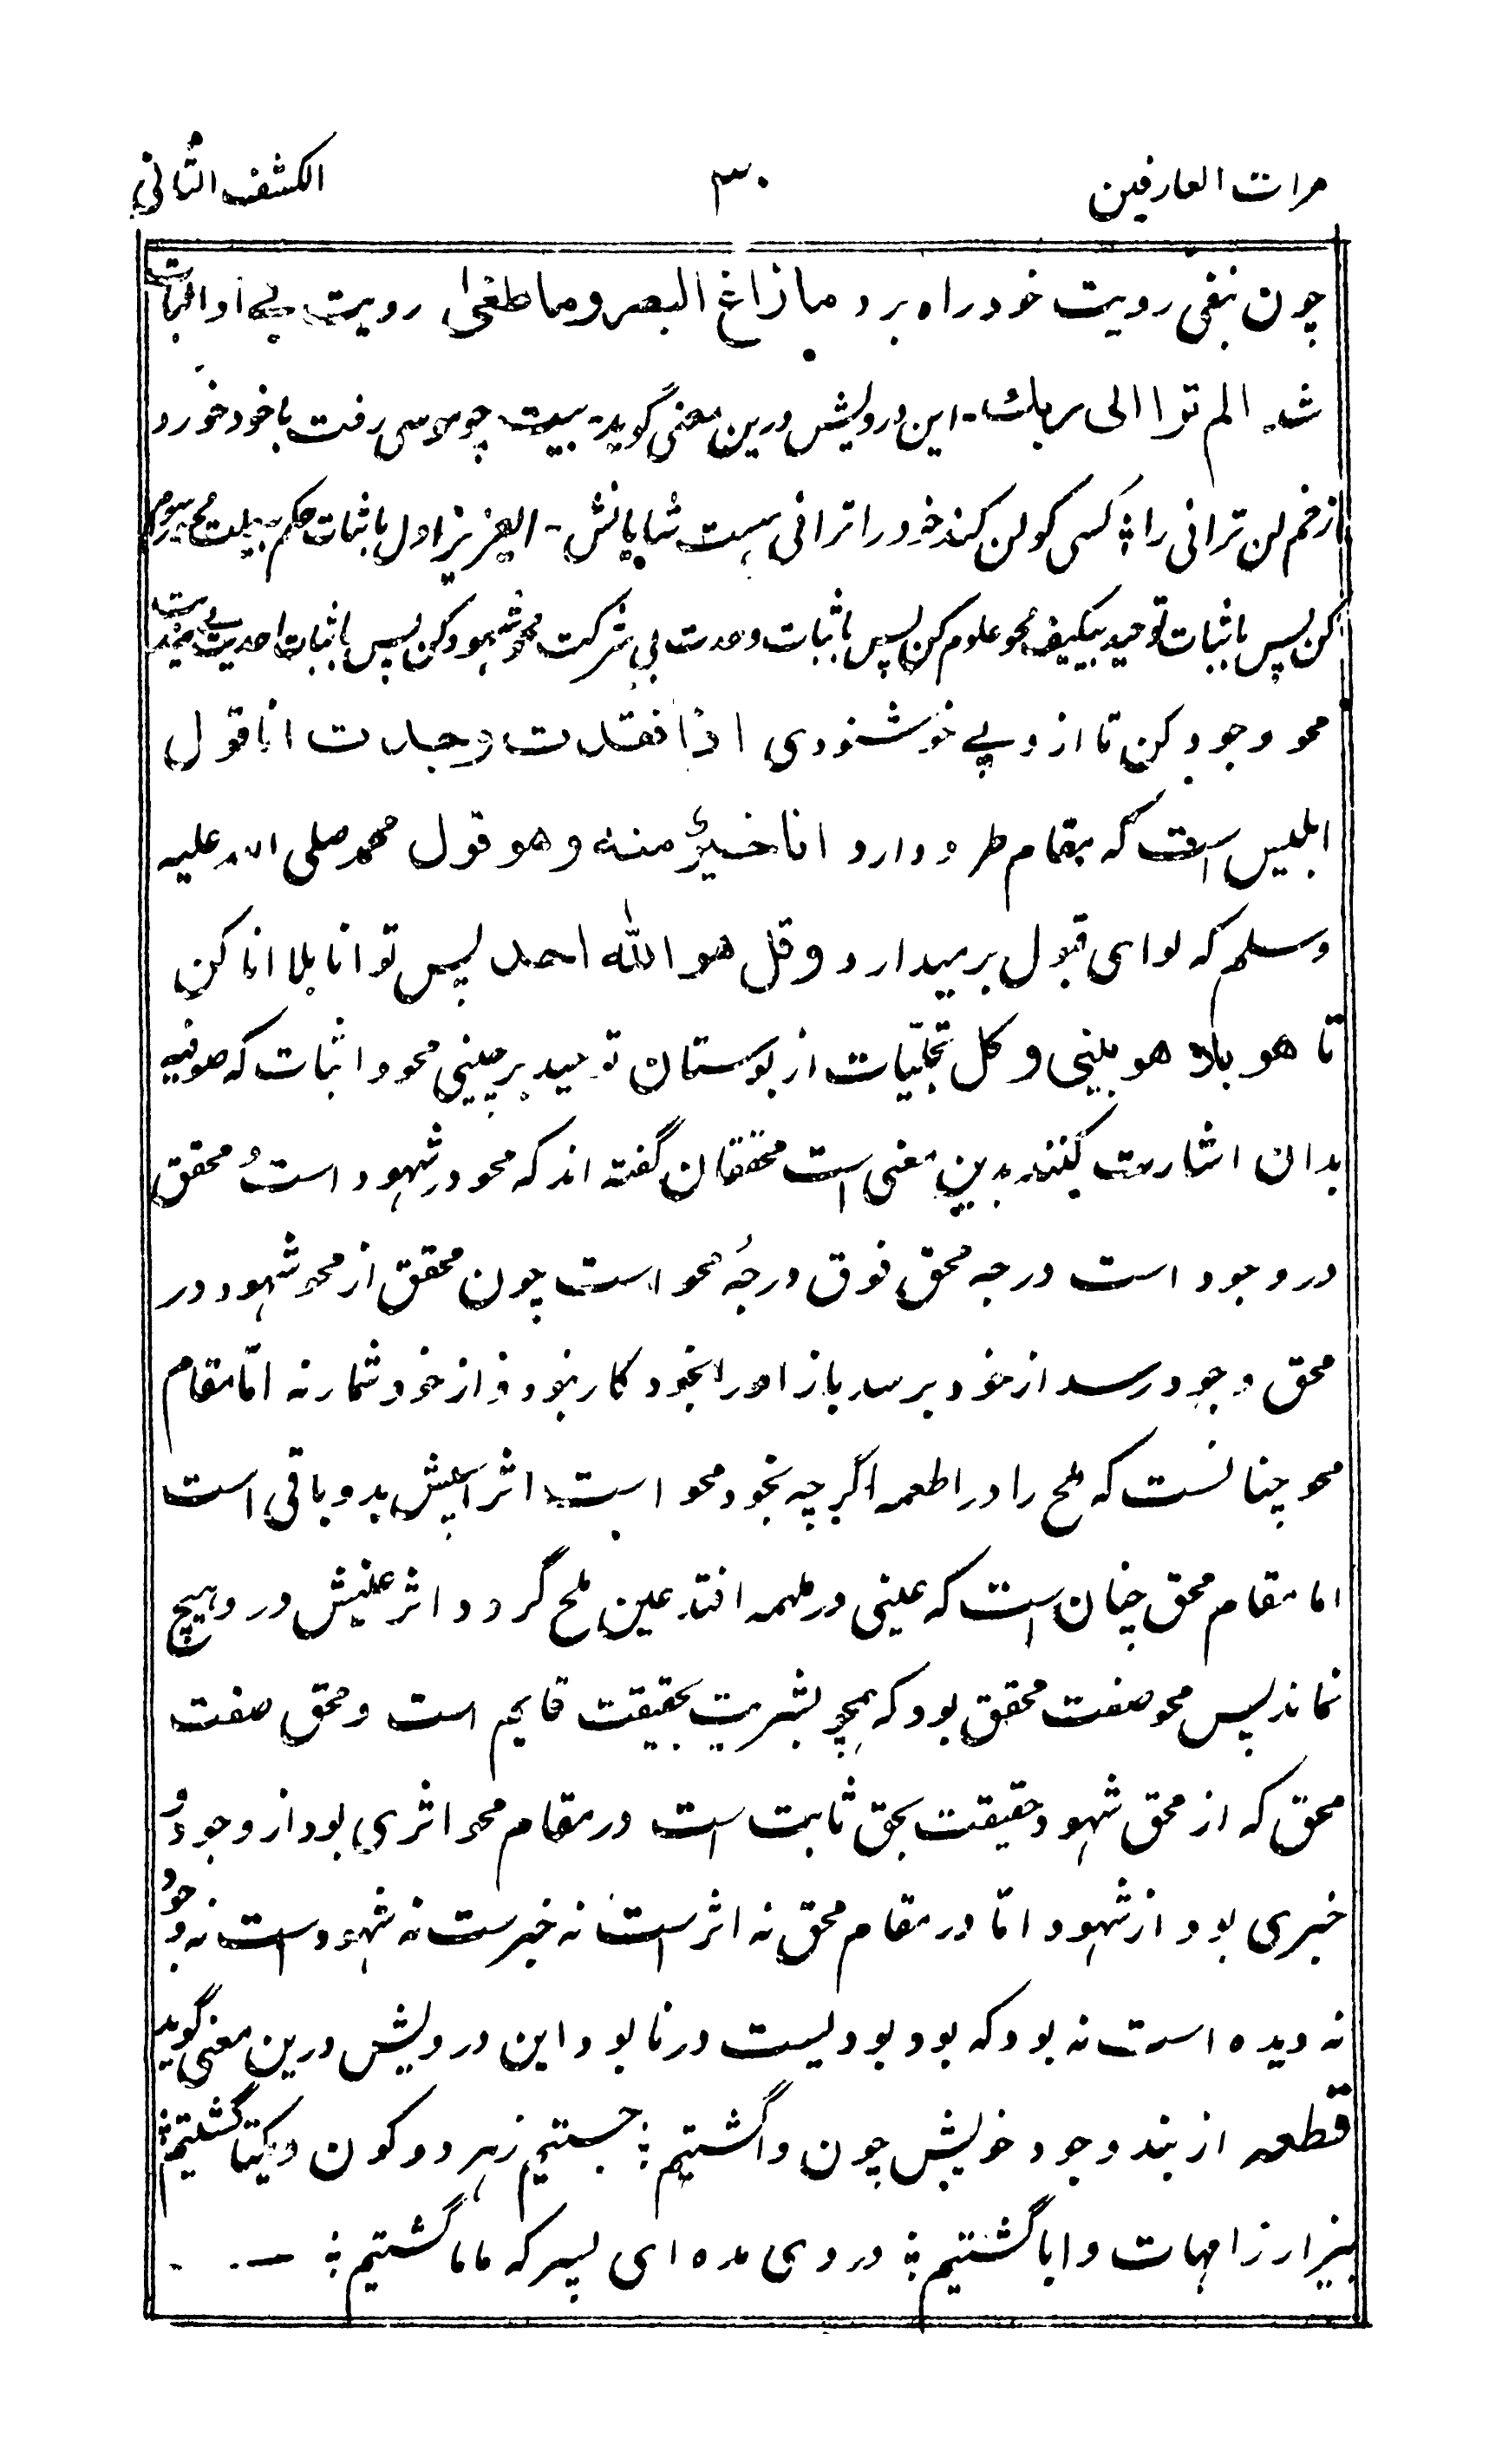 مرات العارفین ۳۰ الکشف الثانی
چون بنفی رویت خود راه برد ما زاغ البصر و ما طغی رویت بے او اثبات
شد الم تر الی ربک - این درویش درین معنی گوید - بیت چو موسی رفت با خود خورد
زخم لن ترانی را ؛ کسی کو لن کند خود را ترانی هست شایانش - العزیز اول باثبات حکم محو رسوم
کن پس باثبات توحید بیکیف محو علوم کن پس باثبات وحدت بی شرکت محو شهود کن پس باثبات احدیت بے
محو وجود کن تا از وے خوشنودی اذا فقدت وجدت انا قول
ابلیس است که بمقام طرد دارد انا خیر منه و هو قول محمد صلی الله علیه
وسلم که لوای قبول برمیدارد و قل هو الله احد پس تو انا بلا انا کن
تا هو بلا هو بینی و کل تجلّیات از بوستان توحید برچینی محو و اثبات که صوفیه
بدان اشارت کنند بدین معنی است محققان گفته اند که محو در شهود است و محقق
در وجود است درجه محق فوق درجهٔ محو است چون محقق از محو شهود در
محق وجود رسد از خود برسد باز او را بخود کار نبود و از خود شمار نه امّا مقام
محو چنانست که ملح را در اطعمه اگرچه بخود محو است اثر بدو باقی است
اما مقام محق چنان است که عینی در ملحه افتد عین ملح گردد اثر عینش در و هیچ
نماند پس محو صفت محقق بود که بمحو بشریت بحقیقت قایم است و محق صفت
محق که از محق شهود حقیقت بحق ثابت است در مقام محو اثری بود از وجود و
خبری بود از شهود امّا در مقام محق نه اثر است نه خبرست نه شهود است نه وجود
نه دیده است نه بود که بود بودیست در نابود این درویش درین معنی گوید
قطعه از بند وجود خویش چون وا گشتیم ؛ جستیم ز هر دو کون و یکتا گشتیم ؛
بیزار ز امهات و ابا گشتیم ؛ دردی مده ای پسر که ما ما گشتیم ؛